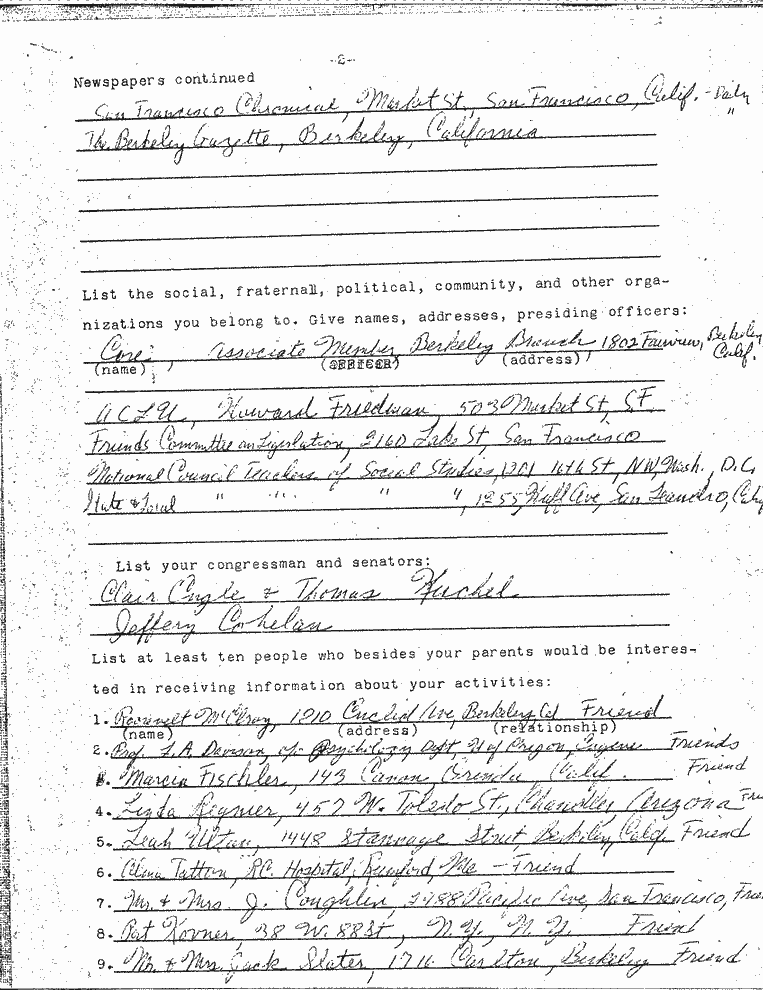 -2-
Newspapers continued
San Francisco Chronical, Market St., San Francisco, Calif. - Daily
The Berkeley Gazette, Berkeley, California "
List the social, fraternal, political, community, and other orga-
nizations you belong to. Give names, addresses, presiding officers:
Core, Associate Member Berkeley Branch, 1802 Fairview, Berkeley Calif.
(name) (address)
ACLU, Howard Friedman, 503 Market St, SF.
Friends Committee on Legislation, 2160 Lake St, San Francisco
National Council Teachers of Social Studies, 1201 16th St, NW, Wash., D.C.
State & Local " " " ", 1255 Huff Ave, San Leandro,
List your congressman and senators:
Clair Engle & Thomas Kuchel
Jeffery Cohelan
List at least ten people who besides your parents would be interes-
ted in receiving information about your activities:
1. Roosevelt McElroy, 1210 Euclid Ave, Berkeley Friend
(name) (address) (relationship)
2. Prof. Davison, c/o Psychology Dept, U of Oregon, Eugene Friends
3. Marcia Fischler, 143 Canon, Calif. Friend
4. Linda Reynier, 457 W. Toledo St., Chandler Arizona
5. Leah Ultan, 1448 Stannage Street Berkeley, Calif Friend
6. Alma Tatton, Hospital, Rumford, Me - Friend
7. Mr. & Mrs. J. Coughlin, Pacific Ave, San Francisco,
8. Pat Kovner, 38 W. 88 St, N.Y., N.Y. Friend
9. Mr. & Mrs. Jack Slater, 1716 Carlton, Berkeley Friend